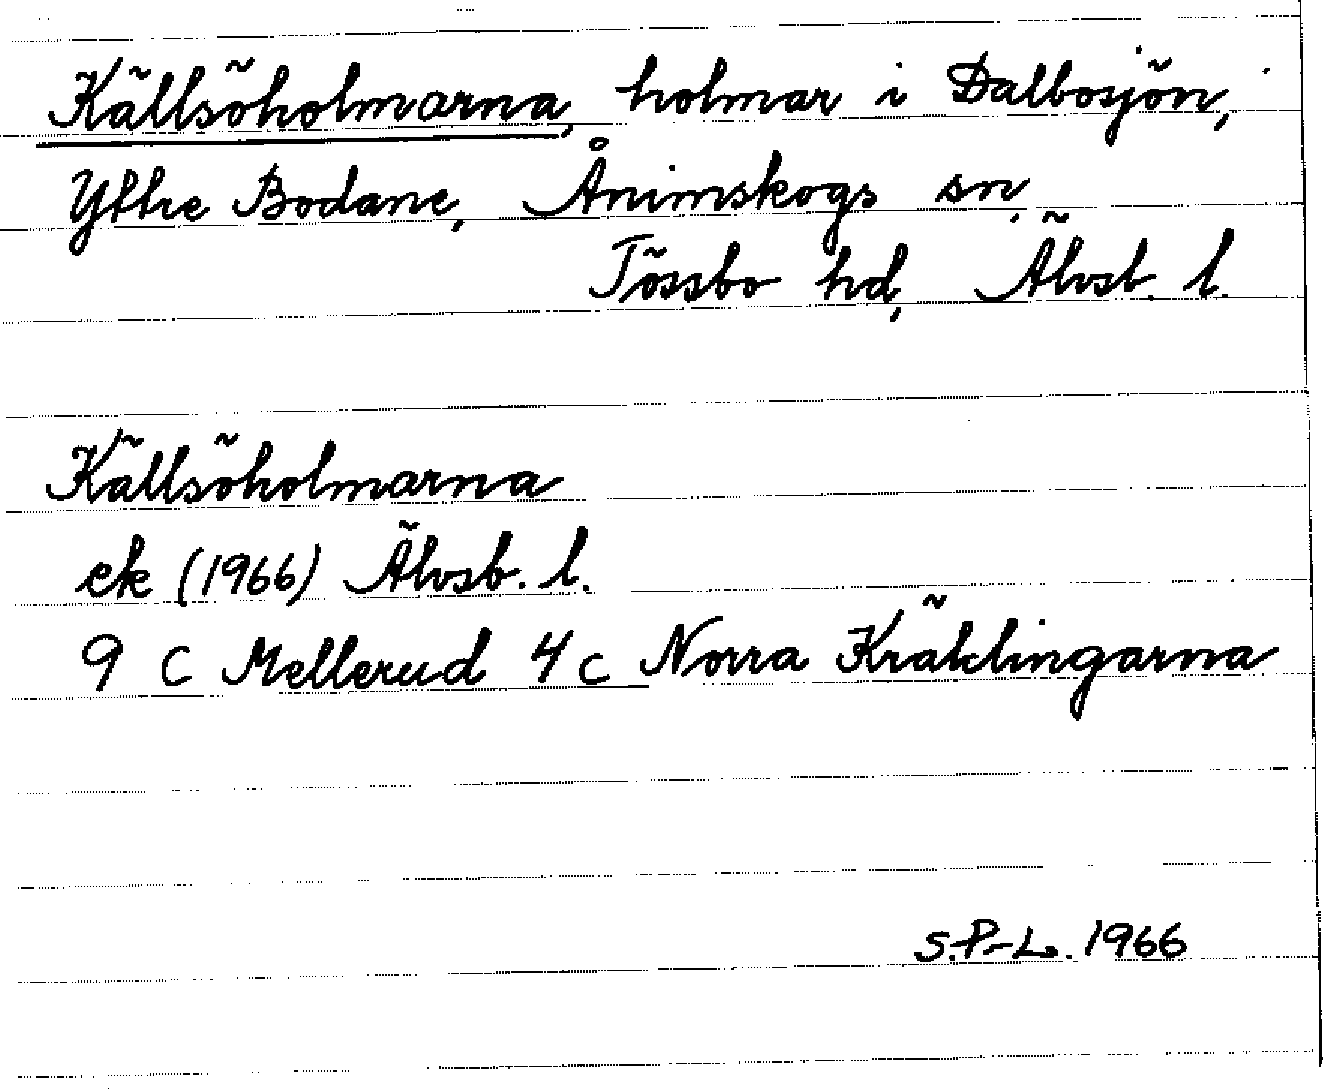 Källsöholmarna, holmar i Dalbosjön,
Yttre Bodane, Ånimskogs sn,
Tössbo hd, Älvsb. l.
Källsöholmarna
ek (1966) Älvsb. l.
9 C Mellerud 4 c Norra Kräklingarna
S.P-L. 1966